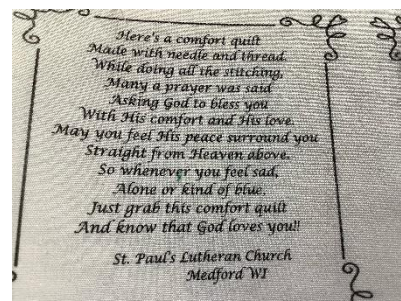 Here's a comfort quilt
Made with needle and thread.
While doing all the stitching,
Many a prayer was said
Asking God to bless you
With His comfort and His love.
May you feel His peace surround you
Straight from Heaven above.
So whenever you feel sad,
Alone or kind of blue,
Just grab this comfort quilt
And know that God loves you!!
St. Paul's Lutheran Church
Medford WI